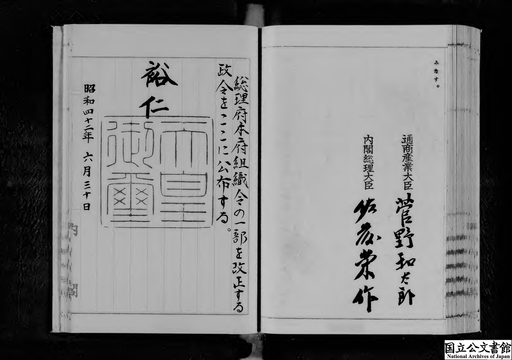 みなす。
通商産業大臣 菅野和太郎
内閣総理大臣 佐藤栄作
総理府本府組織令の一部を改正する
政令をここに公布する。
裕仁
天皇
御璽
昭和四十二年 六月三十日
国立公文書館
National Archives of Japan